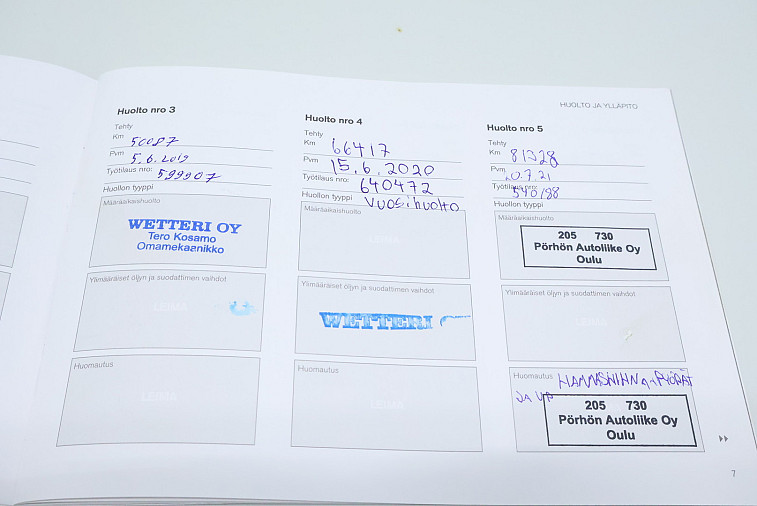 HUOLTO JA YLLÄPITO
Huolto nro 3
Tehty
Km 50087
Pvm 5.6.2019
Työtilaus nro: 599907
Huollon tyyppi
Määräaikaishuolto
WETTERI OY
Tero Kosamo
Omamekaanikko
Ylimääräiset öljyn ja suodattimen vaihdot
LEIMA
Huomautus
LEIMA
Huolto nro 4
Tehty
Km 66417
Pvm 15.6.2020
Työtilaus nro: 640472
Huollon tyyppi Vuosihuolto
Määräaikaishuolto
LEIMA
Ylimääräiset öljyn ja suodattimen vaihdot
WETTERI
Huomautus
LEIMA
Huolto nro 5
Tehty
Km 81328
Pvm 20.7.21
Työtilaus nro: 540188
Huollon tyyppi
Määräaikaishuolto
205 730
Pörhön Autoliike Oy
Oulu
Ylimääräiset öljyn ja suodattimen vaihdot
LEIMA
Huomautus
JA VP
205 730
Pörhön Autoliike Oy
Oulu
7